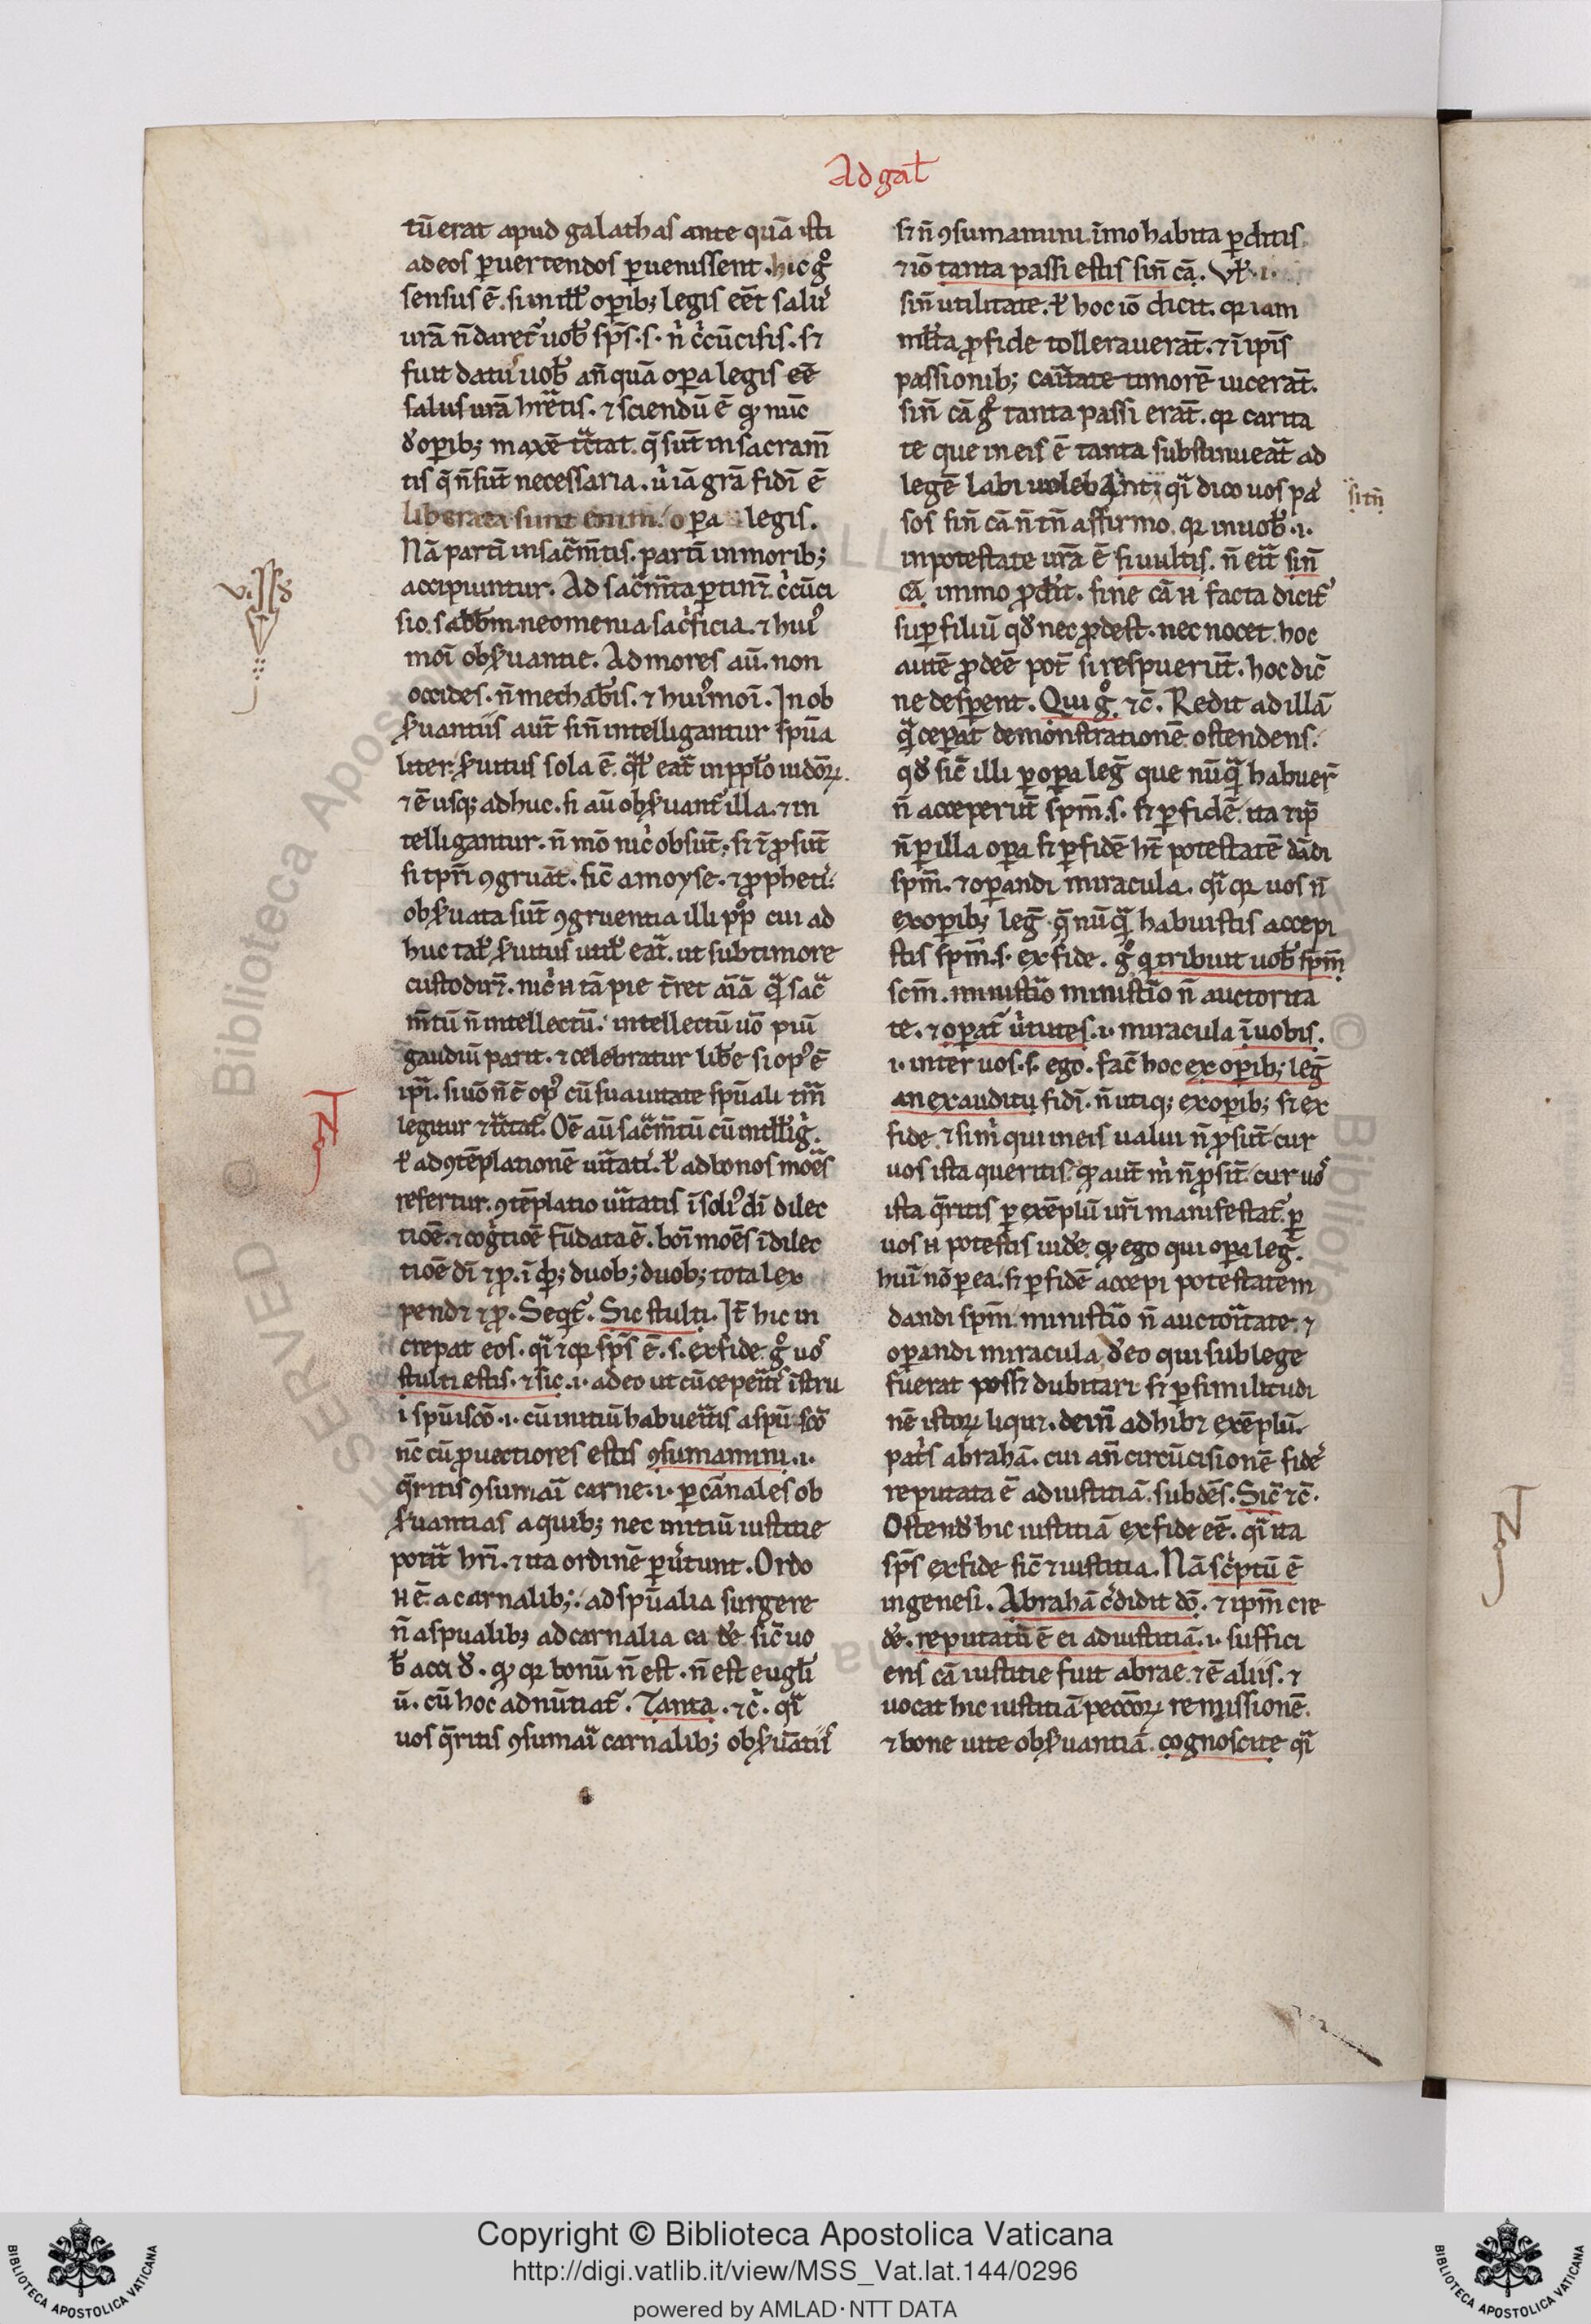 Ad gal̄
tū erat apud galathas ante quā isti
ad eos ꝑuertendos ꝑuenissent. hic gͦ
sensus ē. si in ill̓ oꝑib; legis eēt salus
urā n̄ daret᷑ uob̓ sp̄s. s.
fuit datus uob̓ an̄ quā oꝑa legis eē
salus urā
ꝺ oꝑib; maxē q̄ sūt in sacram̄
tis q̄ n̄ sūt necessaria. grā fidī ē
liberata sunt enim. opa legis.
Nā partī in sac̄m̄tis. partī in morib;
accipiuntur. Ad sac̄m̄ta ꝑtinꝫ. c̓cūci
sio. sabb̄m. neomenia. sac̓ficia. ⁊ huiꝰ
moī obs̓uantie. Ad mores aū. non
occides. n̄ mechab̓is. ⁊ huiꝰmoī. In ob
s̓uantiis aut̄ sin̄ intelligantur spūa
liter. s̓uitus sola ē. in ppl̓o iudōꝝ.
⁊ ē usq; adhuc. si aū obs̓uant᷑ illa. ⁊ in
telligantur. n̄ mō nic̓ obsūt. sꝫ ꝓsūt
si tpr̄i ꝯgruāt. sic̄ a moyse. ⁊ ꝓpheti
obs̓uata sūt ꝯgruentia illi pp̄ cui ad
huc tal̓ s̓uitus util̓ eat̄. ut sub timore
custodirꝫ. nic̓ n̄ tā pie t̄ret aīā sac̄
m̄tū n̄ intellectū. intellectū uō piū
gaudiū parit. ⁊ celebratur lib̓e si opꝰ ē
si uō n̄ ē opꝰ cū suauitate spūali tm̄
legitur ⁊ Oē aū sac̄m̄tū cū
ł ad ꝯtēplationē uītati. ł ad bonos moēs
refertur. ꝯtēplatio uītatis ī soliꝰ dī dilec
tiōe. ⁊ cogtiōe fūdata ē. boī moēs ī dilec
tiōe dī ⁊ ꝓ. duob; duob; tota lex
pendꝫ ⁊ ꝓ. Seqt᷑. Sic stulti. It̄ hic in
crepat eos. ⁊ qꝛ sp̄s ē. s. ex fide gͦ uos
stulti estis. ⁊ sic .i. adeo ut cū cepeītis īstru
i spū scō .i. cū initiū habueītis a spū scō
nc̄ cū ꝓuectiores estis ꝯsumamini .i.
q̄ritis ꝯsumaī carne .i. ꝑ cānales ob
s̓uantias a quib; nec initiū iustitie
potāt hr̄i. ⁊ ita ordinē ꝑu̓tunt. Ordo
n̄ ē a carnalib; ad spūalia surgere
n̄ a spualib; ad carnalia cade. sic̄ uo
b̓ accid̓. qꝛ bonū n̄ est. n̄ est eugl̓i
ū. cū hoc adnūtiat᷑. Tanta. ⁊c̄. 
uos q̄ritis ꝯsumaī carnalib; obs̓uātiis
sꝫ n̄ ꝯsumamini. īmo habita ꝑditis.
⁊ iō tanta passi estis sin̄ cā. Vł. i.
sin̄ utilitate. ł hoc iō dicit. qꝛ iam
ml̓ta ꝓ fide tollerauerāt. ⁊ ī ipīs
passionib; caītate timorē uicerāt.
sin̄ cā gͦ tanta passi erāt. qꝛ carita
te que in eis ē tanta substinueāt ad
legē labi uolebant; dico uos pas
sos sin̄ cā n̄ tn̄ affirmo. qꝛ in uob̓ .i.
si tn̄
in potestate urā ē si uultis. n̄ eīt sin̄
cā. immo ꝓd̓it. sine cā n̄ facta dicit᷑
suꝑfiuū qd̓ nec ꝓdest. nec nocet. hoc
autē ꝓdeē pot̄ si respuerūt. hoc dic̄
ne desꝑent. Qui gͦ. ⁊c̄. Redit ad illā
cepat demonstrationē ostendens.
qd̓ sic̄ illi ꝑ oꝑa leḡ que nūq̄ habuer̄
n̄ acceperūt spm̄. s. sꝫ ꝑ fidē. ita
n̄ ꝑ illa oꝑa sꝫ ꝑ fidē hn̄t potestatē dādi
spm̄. ⁊ oꝑandi miracula. qꝛ uos n̄
ex oꝑib; leḡ q̄ nūq̄ habuistis accepi
stis spm̄. s. ex fide. gͦ q tribuit uob̓ spm̄
scm̄. ministīo ministīo n̄ auctorita
te. ⁊ oꝑat᷑ u̓tutes .i. miracula ī uobis.
.i. inter uos. s. ego. fac̄ hoc ex oꝑib; leḡ
an ex auditu fidī. n̄ utiq; ex oꝑib; sꝫ ex
fide. ⁊ sim̓ qui in eis ualui n̄ ꝓsūt cur
uos ista queritis. aut̄ m̓ n̄ ꝓsūt cur uos
ista q̄ritis ꝑ exēplū ur̄i manifestat᷑. ꝑ
uos n̄ potestis uide. ego qui oꝑa leḡ.
hui nō ꝑ ea. sꝫ ꝑ fidē accepi potestatem
dandi spm̄. ministīo n̄ auctoītate. ⁊
oꝑandi miracula. d̓ eo qui sub lege
fuerat possꝫ dubitari sꝫ ꝑ similitudi
nē istoꝝ liqꝫ. dein̄ adhibꝫ exēplū.
pat̓s abrahā. cui an̄ circūcisionē fides
reputata ē ad iustitiā. subdēs. Sic̄ ⁊c̄.
Ostend̓ hic iustitiā ex fide eē. ita
sp̄s ex fide sic̄ ⁊ iustitia. Nā sc̓ptū ē
in genesi. Abrahā c̓didit dō. ⁊ ipm̄ cre
de. reputatū ē ei ad iustitiā .i. suffici
ens cā iustitie fuit abrae. ⁊ ē aliis. ⁊
uocat hic iustitiā peccōꝝ remissionē.
⁊ bone uite obs̓uantiā. cognoscite
Copyright © Biblioteca Apostolica Vaticana
http://digi.vatlib.it/view/MSS_Vat.lat.144/0296
powered by AMLAD·NTT DATA
BIBLIOTECA APOSTOLICA VATICANA
BIBLIOTECA APOSTOLICA VATICANA